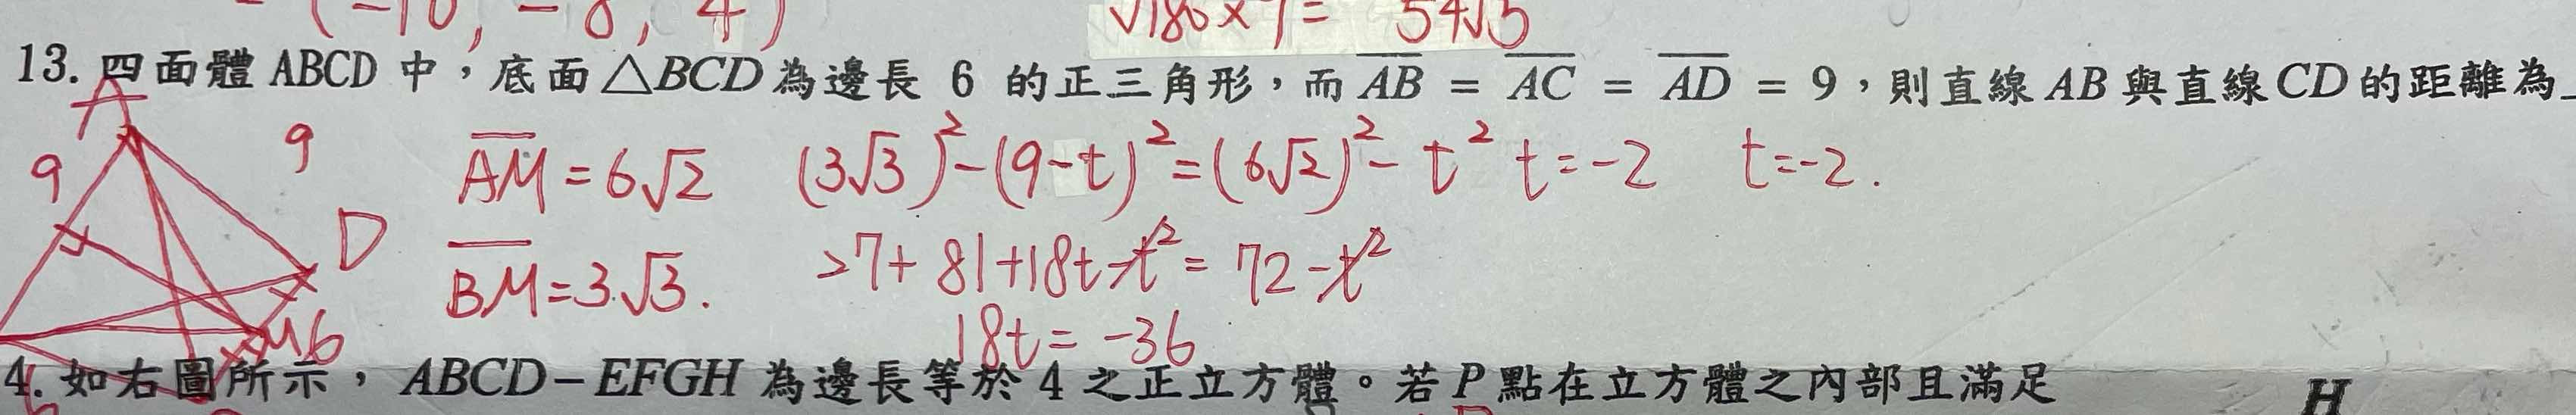 (-10, -8, 4) √180×7= 54√5
13. 四面體 ABCD 中，底面△BCD為邊長 6 的正三角形，而 AB = AC = AD = 9，則直線 AB 與直線CD的距離為
A
9 9 AM=6√2 (3√3)²-(9-t)²=(6√2)²-t² t=-2 t=-2.
D BM=3√3. 27+81+18t-t²=72-t²
M 6 18t=-36
4. 如右圖所示，ABCD-EFGH 為邊長等於 4 之正立方體。若 P 點在立方體之內部且滿足
H